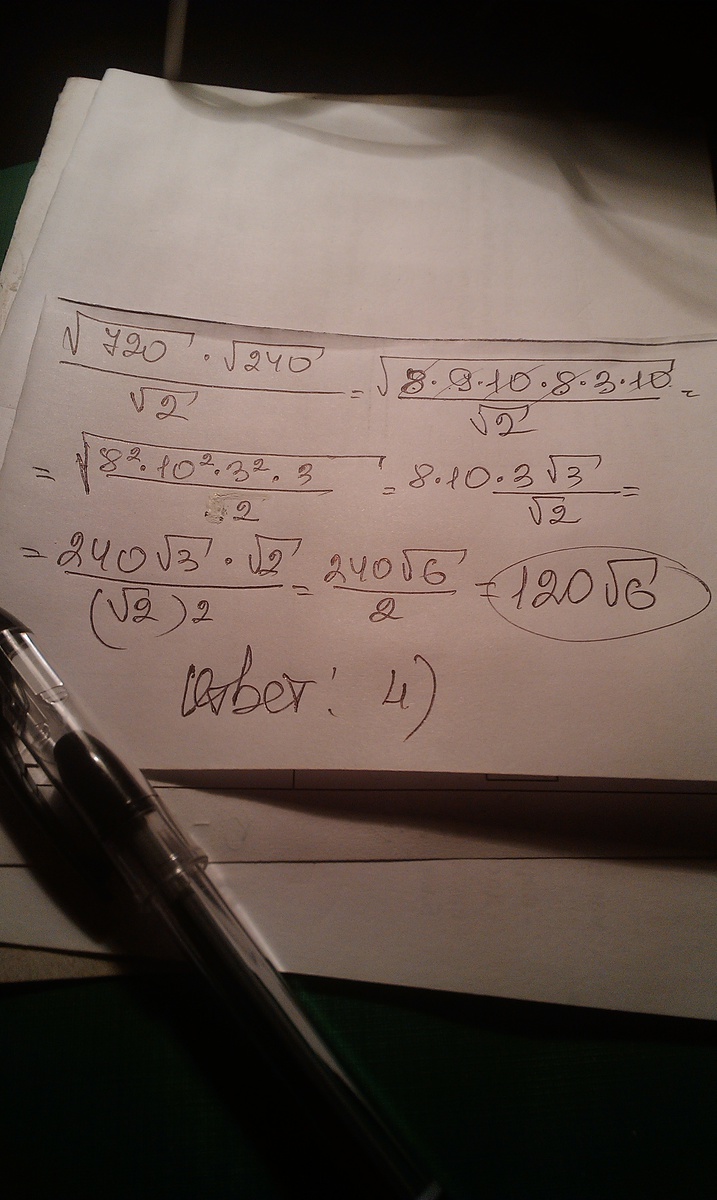 √720 · √240 / √2 = √8·9·10·8·3·10 / √2 =
= √8²·10²·3²·3 / √2 = 8·10·3√3 / √2 =
= 240√3 · √2 / (√2)2 = 240√6 / 2 = 120√6
Ответ: 4)